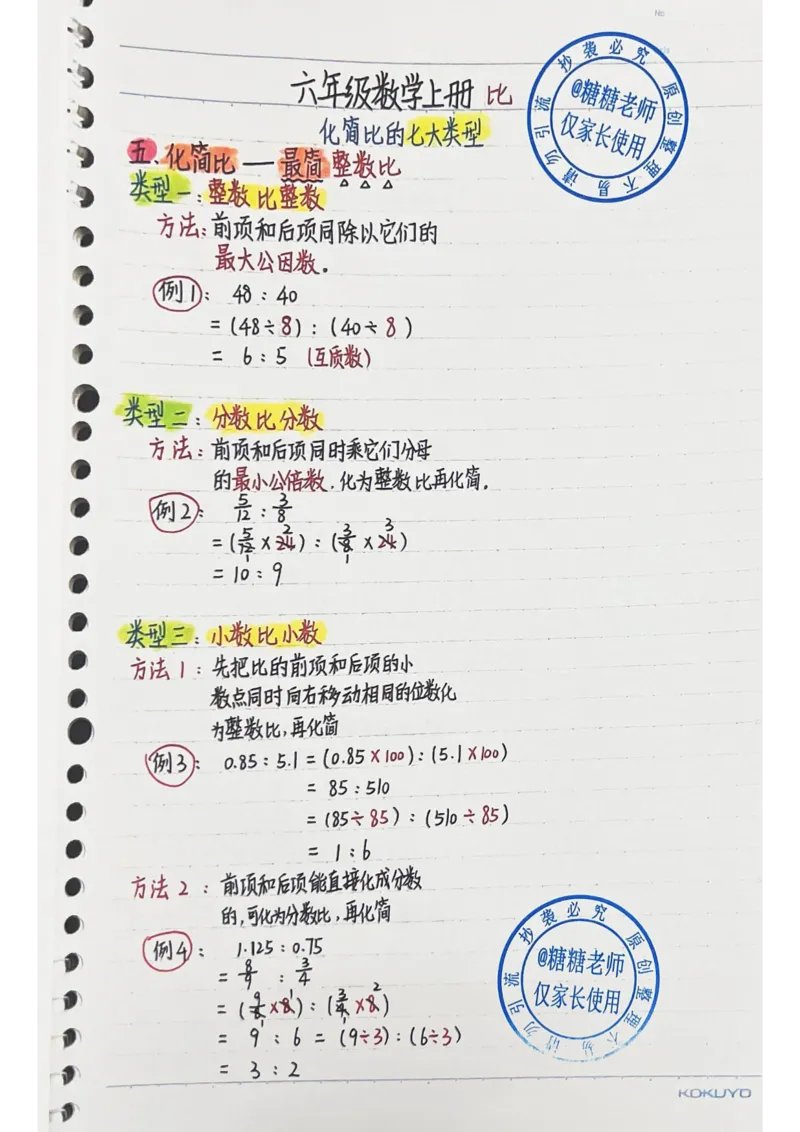 No
六年级数学上册 比
化简比的七大类型
五、化简比 — 最简整数比
类型一：整数比整数
方法：前项和后项同除以它们的
最大公因数。
例1： 48：40
=(48÷8)：(40÷8)
= 6：5 (互质数)
类型二：分数比分数
方法：前项和后项同时乘它们分母
的最小公倍数，化为整数比再化简。
例2： 5/12：3/8
=(5/12×24)：(3/8×24)
=10：9
类型三：小数比小数
方法1：先把比的前项和后项的小
数点同时向右移动相同的位数化
为整数比，再化简
例3： 0.85：5.1=(0.85×100)：(5.1×100)
= 85：510
=(85÷85)：(510÷85)
= 1：6
方法2：前项和后项能直接化成分数
的，可化为分数比，再化简
例4： 1.125：0.75
= 8/9：3/4
=(9/8×8)：(3/4×8)
= 9：6 =(9÷3)：(6÷3)
= 3：2
抄袭必究 原创整理不易请勿引流
@糖糖老师
仅家长使用
抄袭必究 原创整理不易请勿引流
@糖糖老师
仅家长使用
KOKUYO